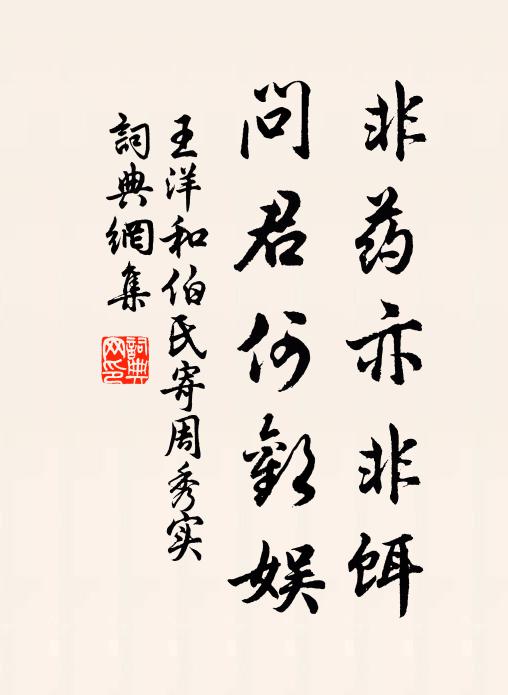 非药亦非饵
问君何欢娱
王洋和伯氏寄周秀实
詞典網集
詞典网印